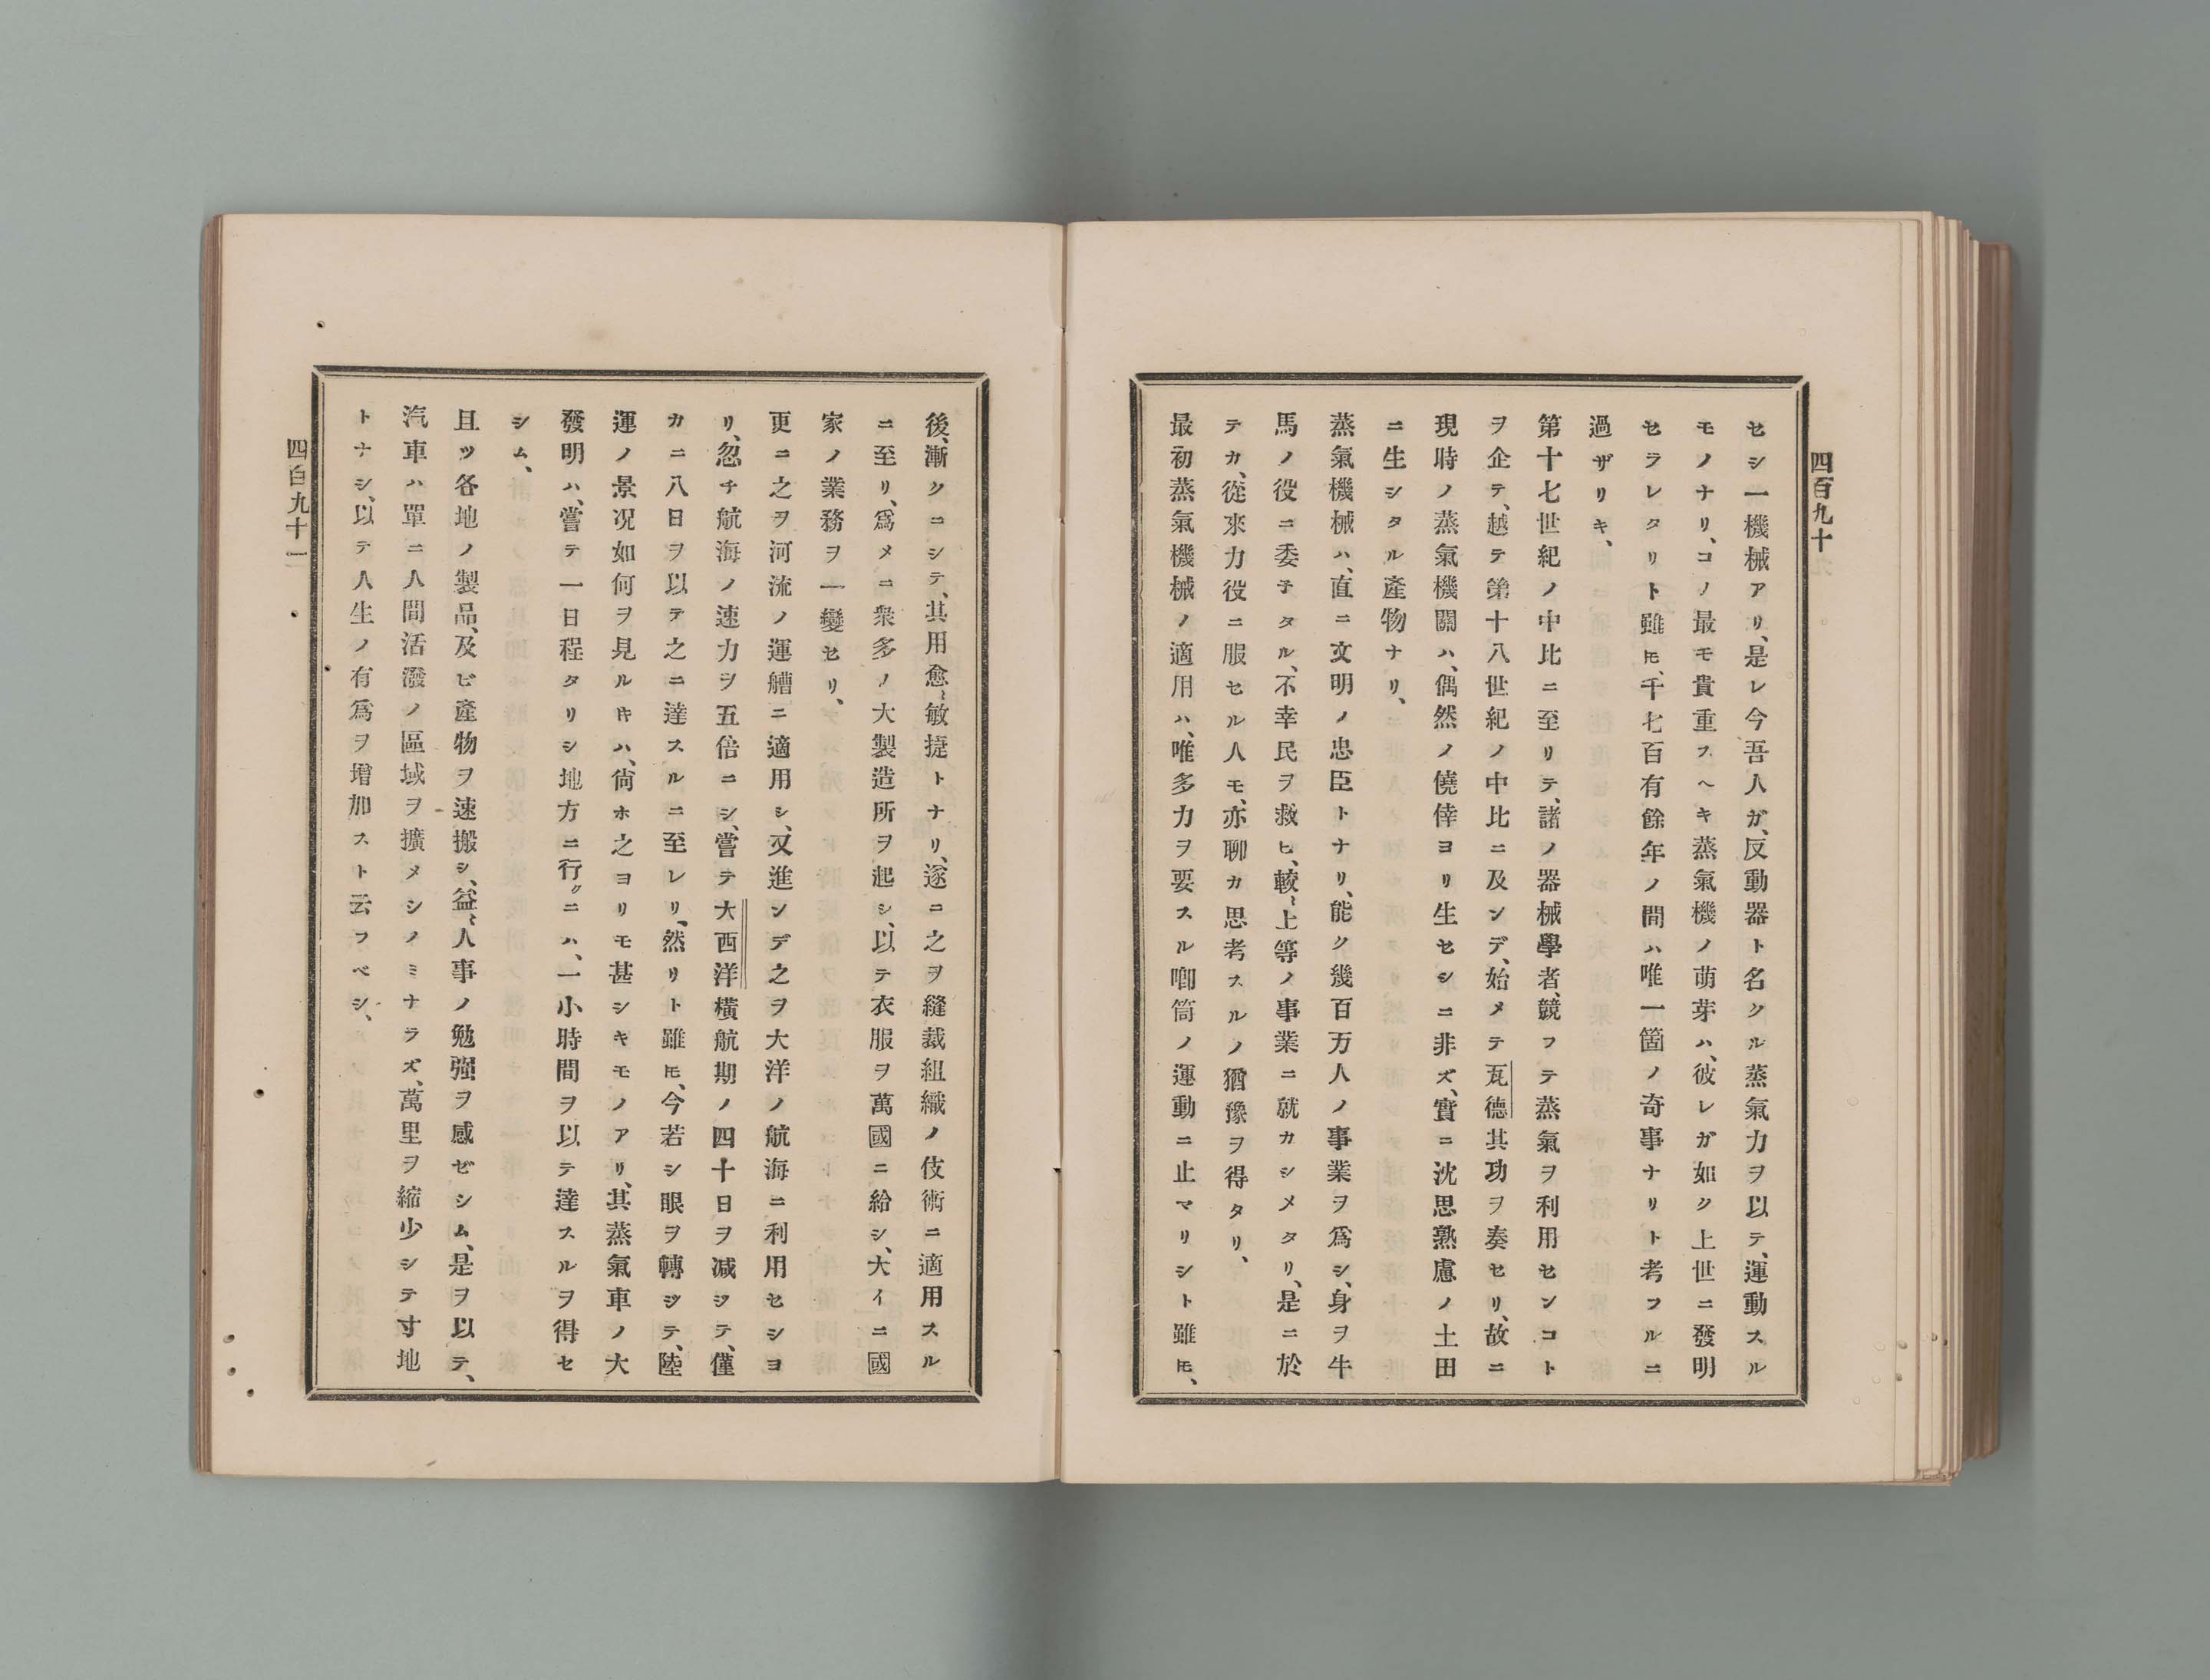 四百九十
セシ一機械アリ、是レ今吾人ガ、反動器ト名クル蒸氣力ヲ以テ、運動スル
モノナリ、コノ最モ貴重スヘキ蒸氣機ノ萌芽ハ、彼レガ如ク上世ニ發明
セラレタリト雖𪜈、千七百有餘年ノ間ハ唯一箇ノ奇事ナリト考フルニ
過ザリキ、
第十七世紀ノ中比ニ至リテ、諸ノ器械學者、競フテ蒸氣ヲ利用センコト
ヲ企テ、越テ第十八世紀ノ中比ニ及ンデ、始メテ瓦德其功ヲ奏セリ、故ニ
現時ノ蒸氣機關ハ、偶然ノ僥倖ヨリ生セシニ非ズ、實ニ沈思熟慮ノ土田
ニ生シタル產物ナリ、
蒸氣機械ハ、直ニ文明ノ忠臣トナリ、能ク幾百万人ノ事業ヲ爲シ、身ヲ牛
馬ノ役ニ委子タル、不幸民ヲ救ヒ、較〻上等ノ事業ニ就カシメタリ、是ニ於
テカ、從來力役ニ服セル人モ、亦聊カ思考スルノ猶豫ヲ得タリ、
最初蒸氣機械ノ適用ハ、唯多力ヲ要スル喞筒ノ運動ニ止マリシト雖𪜈、
後、漸クニシテ、其用愈〻敏捷トナリ、遂ニ之ヲ縫裁組織ノ伎術ニ適用スル
ニ至リ、爲メニ衆多ノ大製造所ヲ起シ、以テ衣服ヲ萬國ニ給シ、大イニ國
家ノ業務ヲ一變セリ、
更ニ之ヲ河流ノ運艚ニ適用シ、又進ンデ之ヲ大洋ノ航海ニ利用セシヨ
リ、忽チ航海ノ速力ヲ五倍ニシ、嘗テ大西洋橫航期ノ四十日ヲ減ジテ、僅
カニ八日ヲ以テ之ニ達スルニ至レリ、然リト雖𪜈、今若シ眼ヲ轉ジテ、陸
運ノ景況如何ヲ見ルキハ、尙ホ之ヨリモ甚シキモノアリ、其蒸氣車ノ大
發明ハ、嘗テ一日程タリシ地方ニ行クニハ、一小時間ヲ以テ達スルヲ得セ
シム、
且ツ各地ノ製品、及ビ產物ヲ速搬シ、益〻人事ノ勉强ヲ感ゼシム、是ヲ以テ、
汽車ハ單ニ人間活潑ノ區域ヲ擴メシノミナラズ、萬里ヲ縮少シテ寸地
トナシ、以テ人生ノ有爲ヲ增加スト云フベシ、
四百九十一